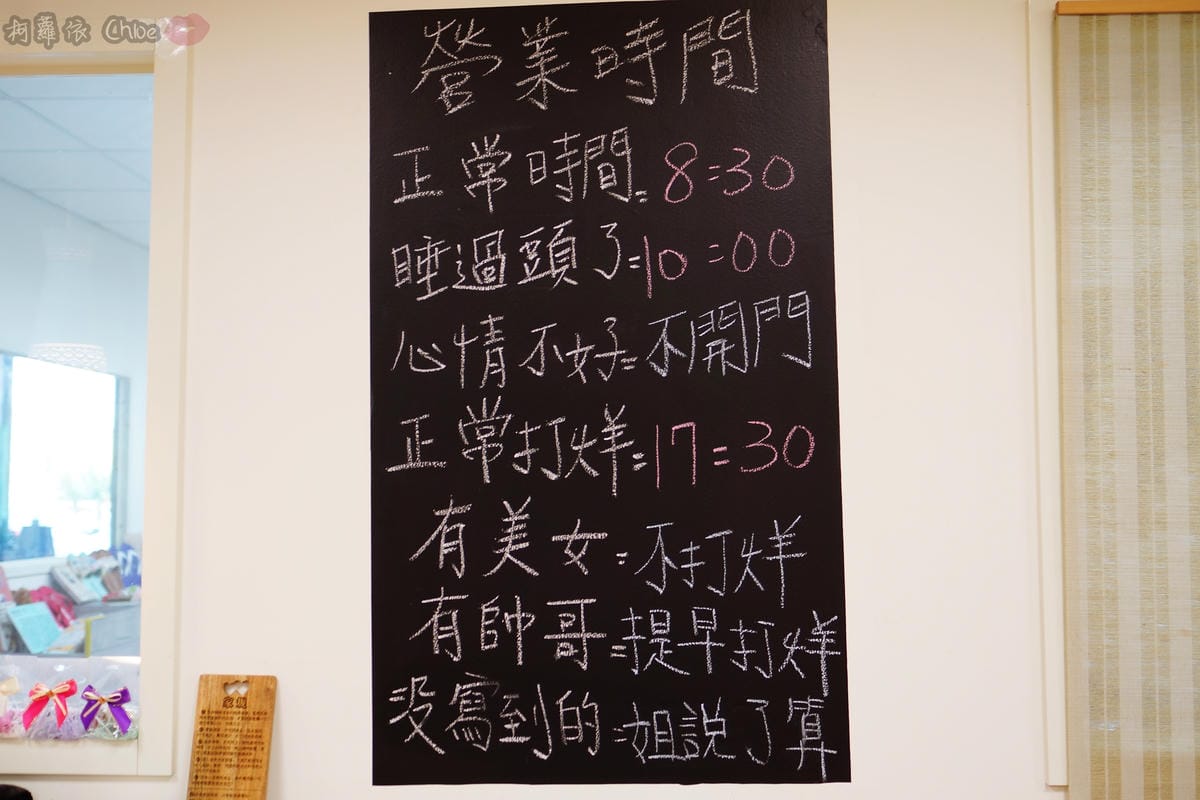 柯蘿依 Chloe
營業時間
正常時間=8:30
睡過頭了=10:00
心情不好=不開門
正常打烊=17:30
有美女=不打烊
有帥哥=提早打烊
沒寫到的=姐說了算
家規